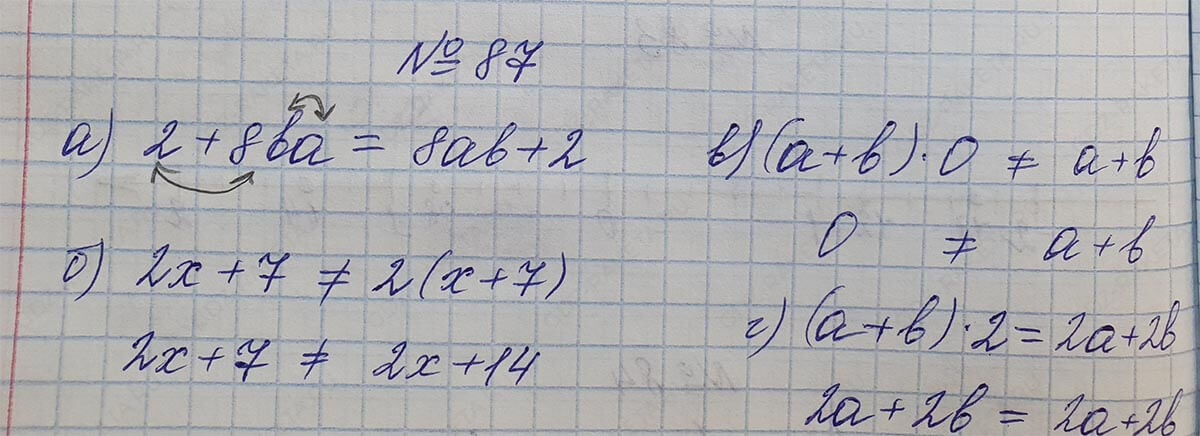 № 87
а) 2 + 8ba = 8ab + 2
б) 2x + 7 ≠ 2(x + 7)
2x + 7 ≠ 2x + 14
в) (a + b) · 0 ≠ a + b
0 ≠ a + b
г) (a + b) · 2 = 2a + 2b
2a + 2b = 2a + 2b